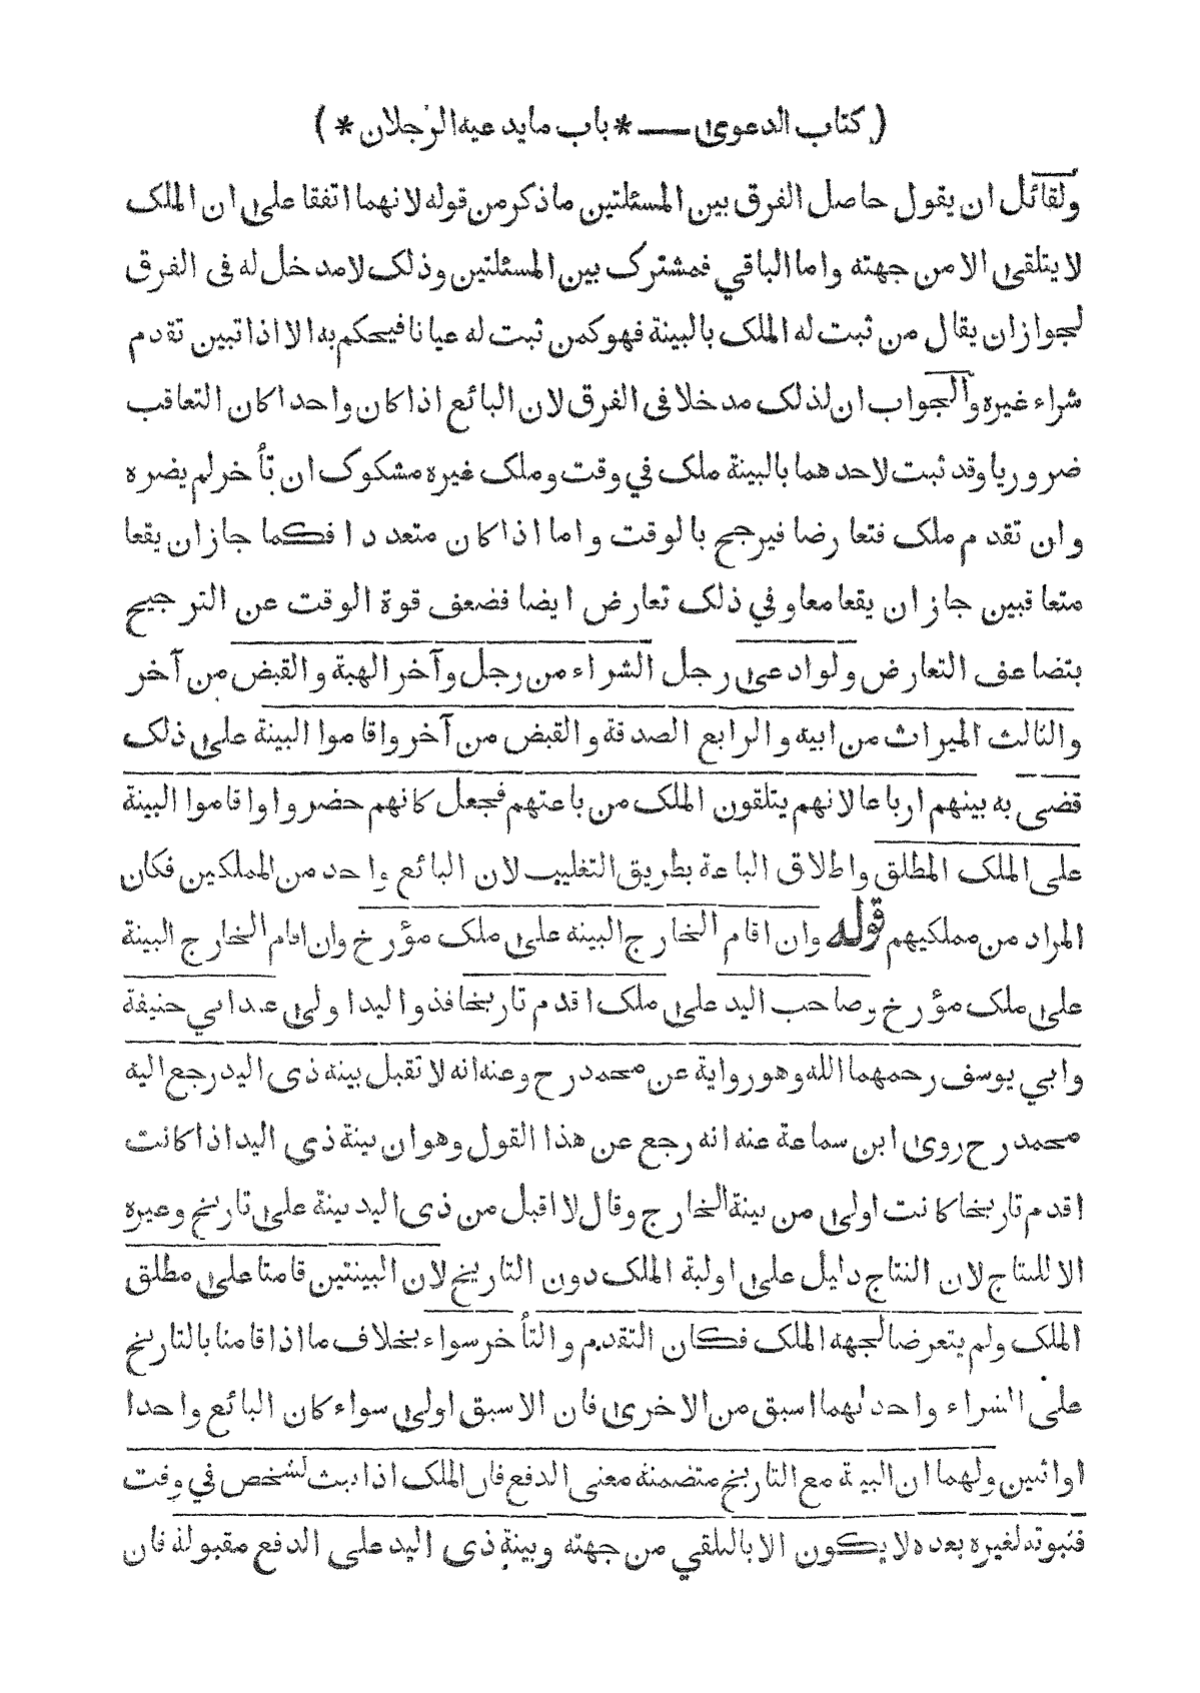 ( كتاب الدعوى — * باب ما يدعيه الرجلان * )
ولقائل ان يقول حاصل الفرق بين المسئلتين ما ذكر من قوله لانهما اتفقا على ان الملك
لا يتلقى الا من جهته واما الباقي فمشترك بين المسئلتين وذلك لا مدخل له في الفرق
لجواز ان يقال من ثبت له الملك بالبينة فهو كمن ثبت له عيانا فيحكم به الا اذا تبين تقدم
شراء غيره والجواب ان لذلك مدخلا في الفرق لان البائع اذا كان واحدا كان التعاقب
ضروريا وقد ثبت لاحدهما بالبينة ملك في وقت وملك غيره مشكوك ان تأخر لم يضره
وان تقدم ملك فتعارضا فيرجح بالوقت واما اذا كان متعددا فكما جاز ان يقعا
متعاقبين جاز ان يقعا معا وفي ذلك تعارض ايضا فضعف قوة الوقت عن الترجيح
بتضاعف التعارض ولو ادعى رجل الشراء من رجل وآخر الهبة والقبض من آخر
والثالث الميراث من ابيه والرابع الصدقة والقبض من آخر واقاموا البينة على ذلك
قضى به بينهم ارباعا لانهم يتلقون الملك من باعتهم فجعل كانهم حضروا واقاموا البينة
على الملك المطلق واطلاق الباعة بطريق التغليب لان البائع واحد من المملكين فكان
المراد من مملكيهم قوله وان اقام الخارج البينه على ملك مؤرخ وان اقام الخارج البينة
على ملك مؤرخ وصاحب اليد على ملك اقدم تاريخا فذو اليد اولى عند ابي حنيفة
وابي يوسف رحمهما الله وهو رواية عن محمد رح وعنه انه لا تقبل بينه ذي اليد رجع اليه
محمد رح روى ابن سماعة عنه انه رجع عن هذا القول وهو ان بينة ذي اليد اذا كانت
اقدم تاريخا كانت اولى من بينة الخارج وقال لا اقبل من ذي اليد بينة على تاريخ وغيره
الا النتاج لان النتاج دليل على اولية الملك دون التاريخ لان البينتين قامتا على مطلق
الملك ولم يتعرضا لجهه الملك فكان التقدم والتأخر سواء بخلاف ما اذا قامتا بالتاريخ
على الشراء واحدلهما اسبق من الاخرى فان الاسبق اولى سواء كان البائع واحدا
او اثنين ولهما ان البينة مع التاريخ متضمنة معنى الدفع فان الملك اذا ثبت لشخص في وقت
فثبوته لغيره بعده لا يكون الا بالتلقي من جهته وبينة ذي اليد على الدفع مقبولة فان